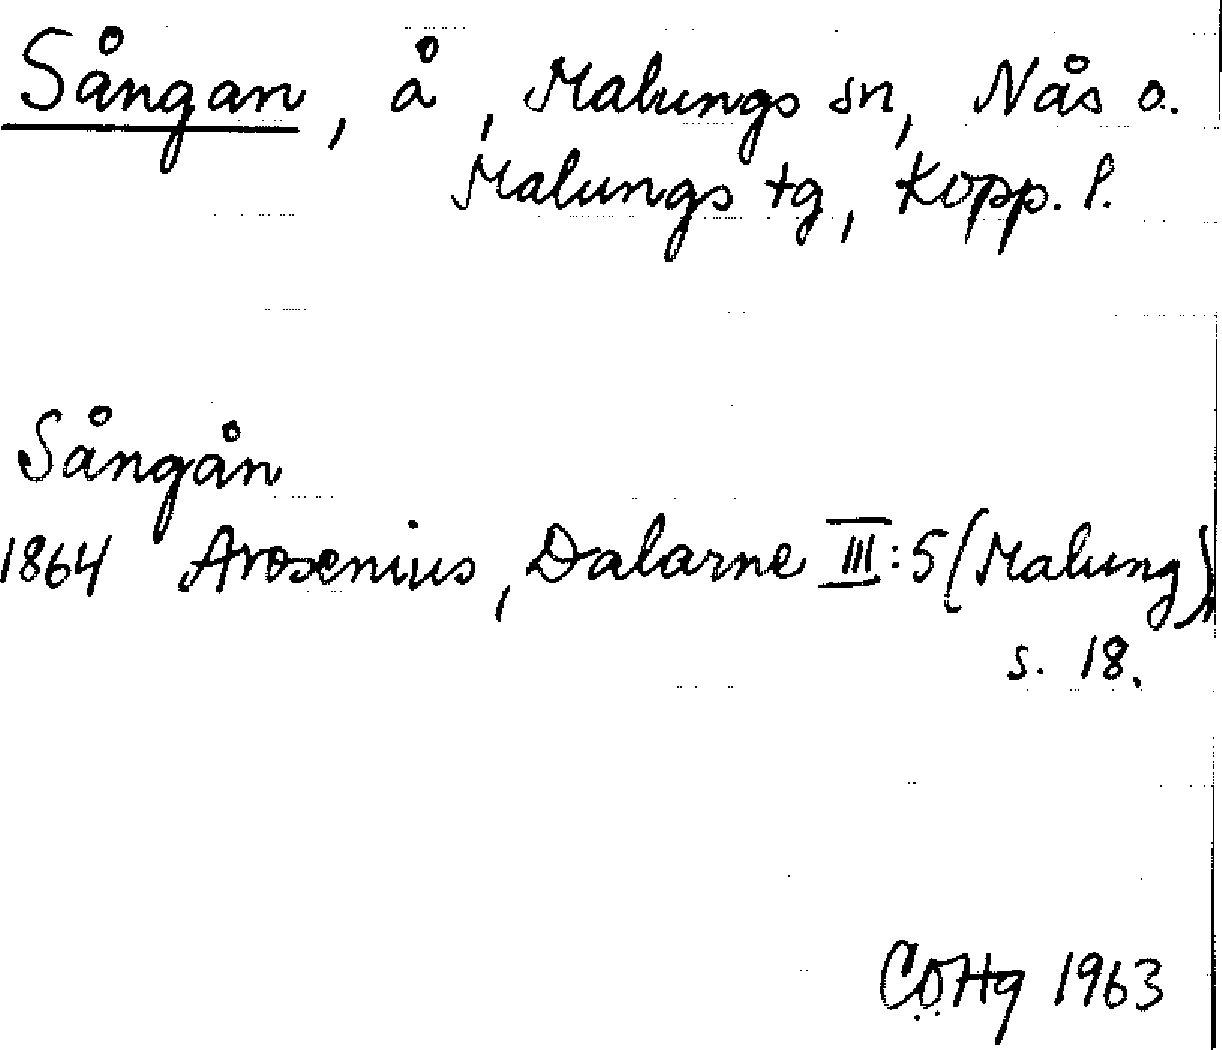 Sångan, å, Malungs sn, Nås o.
Malungs tg, Kopp. l.
Sångån
1864 Arosenius, Dalarne III:5 (Malung)
s. 18.
CÖHg 1963